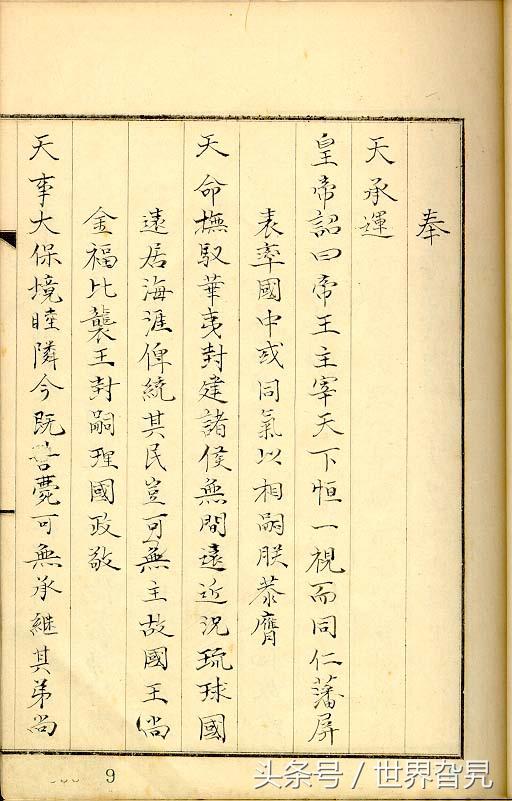 奉
天承運
皇帝詔曰帝王主宰天下恒一視而同仁藩屏
表率國中或同氣以相嗣朕恭膺
天命撫馭華夷封建諸侯無間遠近況琉球國
遠居海涯俾統其民豈可無主故國王尚
金福比襲王封嗣理國政敬
天事大保境睦隣今既薨可無承繼其弟尚
9
头条号 / 世界旮旯